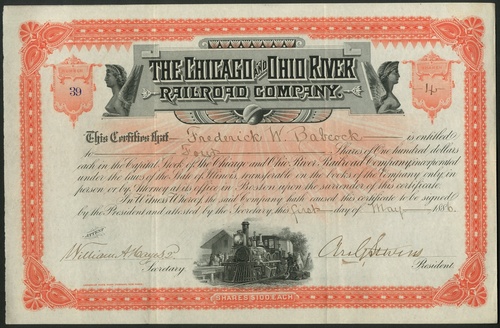 THE CHICAGO AND OHIO RIVER
RAILROAD COMPANY.
39
4
This Certifies that Frederick W. Babcock is entitled
to Four Shares of One hundred dollars
each in the Capital Stock of the Chicago and Ohio River Railroad Company, incorporated
under the laws of the State of Illinois transferable on the books of the Company only, in
person or by Attorney at its office in Boston upon the surrender of this certificate.
In Witness Whereof, the said Company hath caused this certificate to be signed
by the President and attested by the Secretary, the first day of May
ATTEST
William A.
Secretary.
President
SHARES $100 EACH